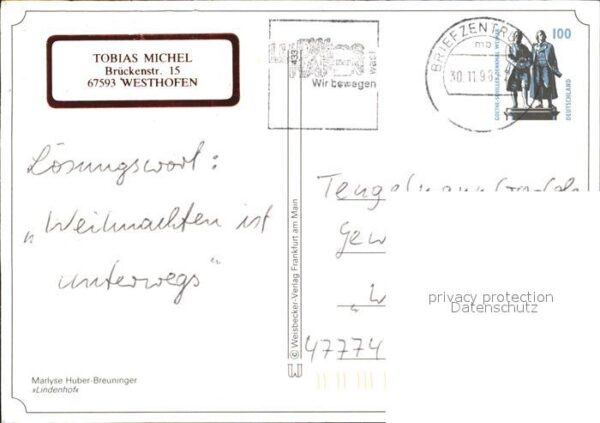 TOBIAS MICHEL
Brückenstr. 15
67593 WESTHOFEN
433
Wir bewegen
BRIEFZENTRUM
mb
30.11.98
100
GOETHE-SCHILLER-DENKMAL WEIMAR
DEUTSCHLAND
Lösungswort:
„Weihnachten ist
unterwegs“
© Weisbecker-Verlag Frankfurt am Main
Tengelmann
Gew
„W
47774
privacy protection
Datenschutz
Marlyse Huber-Breuninger
»Lindenhof«